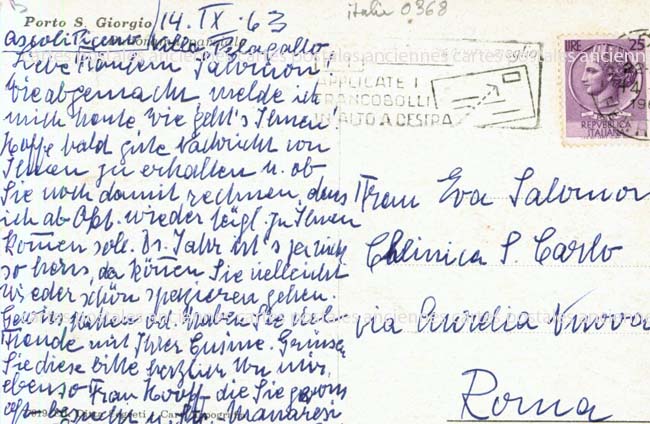 Porto S. Giorgio
14. IX. 63
italie 0368
Ascoli Piceno Villa
Liebe Fräulein Salomon!
Wie abgemacht, melde ich
mich heute. Wie geht's Ihnen?
Hoffe bald gute Nachricht von
Ihnen zu erhalten u. ob
Sie noch damit rechnen, dass
ich ab Okt. wieder tägl. zu Ihnen
kommen soll. Ds. Jahr ist's ja nicht
so heiss, da können Sie vielleicht
wieder schön spazieren gehen.
Gewiss hatten od. haben Sie viel
Freude mit Ihrer Cusine. Grüssen
Sie diese bitte herzlich von mir,
ebenso Frau die Sie gewiss
oft besucht u.
APPLICATE I
FRANCOBOLLI
IN ALTO A DESTRA
LIRE 25
REPVBBLICA
ITALIANA
Frau Eva Salomon
Chlinica S. Carlo
via Aurelia Nuova
Roma
cartes postales anciennes